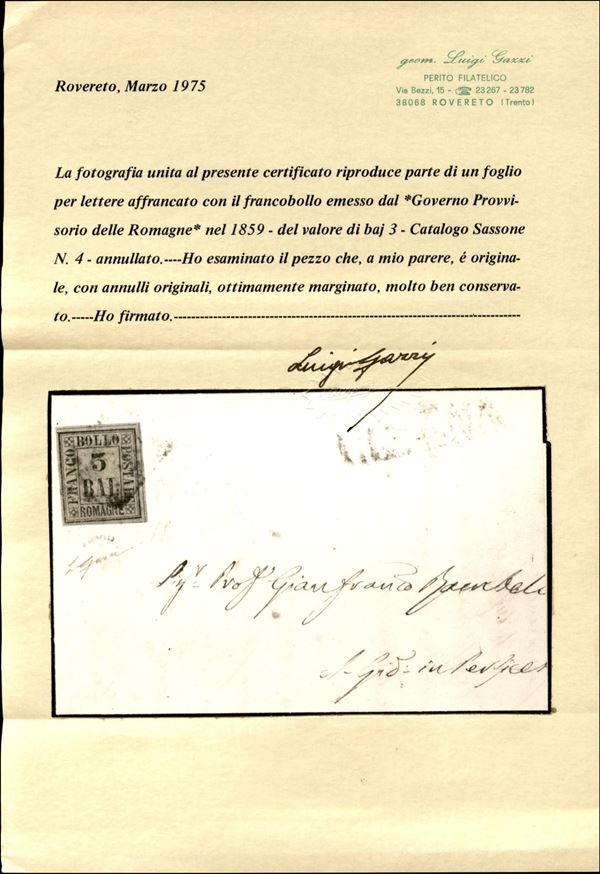 geom. Luigi Gazzi
PERITO FILATELICO
Via Bezzi, 15 - ☎ 23267 - 23782
38068 ROVERETO (Trento)
Rovereto, Marzo 1975
La fotografia unita al presente certificato riproduce parte di un foglio
per lettere affrancato con il francobollo emesso dal *Governo Provvi-
sorio delle Romagne* nel 1859 - del valore di baj 3 - Catalogo Sassone
N. 4 - annullato.----Ho esaminato il pezzo che, a mio parere, é origina-
le, con annulli originali, ottimamente marginato, molto ben conserva-
to.-----Ho firmato.------------------------------------------------------------
Luigi Gazzi
FRANCO BOLLO POSTALE
3
BAI
ROMAGNE
Prof. Gian Franco
in